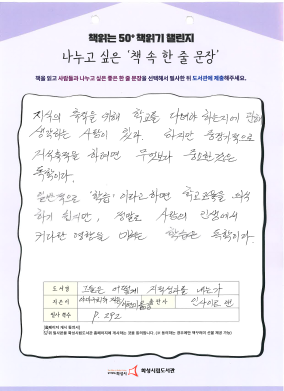 책읽는 50⁺ 책읽기 챌린지
나누고 싶은 '책 속 한 줄 문장'
책을 읽고 사람들과 나누고 싶은 좋은 한 줄 문장을 선택해서 필사한 뒤 도서관에 제출해주세요.
지식의 축적을 위해 학교를 다녀야 하는지에 관해
생각하는 사람이 있다. 하지만 중장기적으로
지식축적을 하려면 무엇보다 중요한 것은
독학이다.
일반적으로 '학습'이라고 하면 학교교육을 의식
하기 쉽지만, 정말로 사람의 인생에서
커다란 영향을 미치는 학습은 독학이다.
도서명
그들은 어떻게 지적성과를 내는가
지은이
야마구치 슈
출판사
인사이트앤
필사 쪽수
P. 292
화성시립도서관